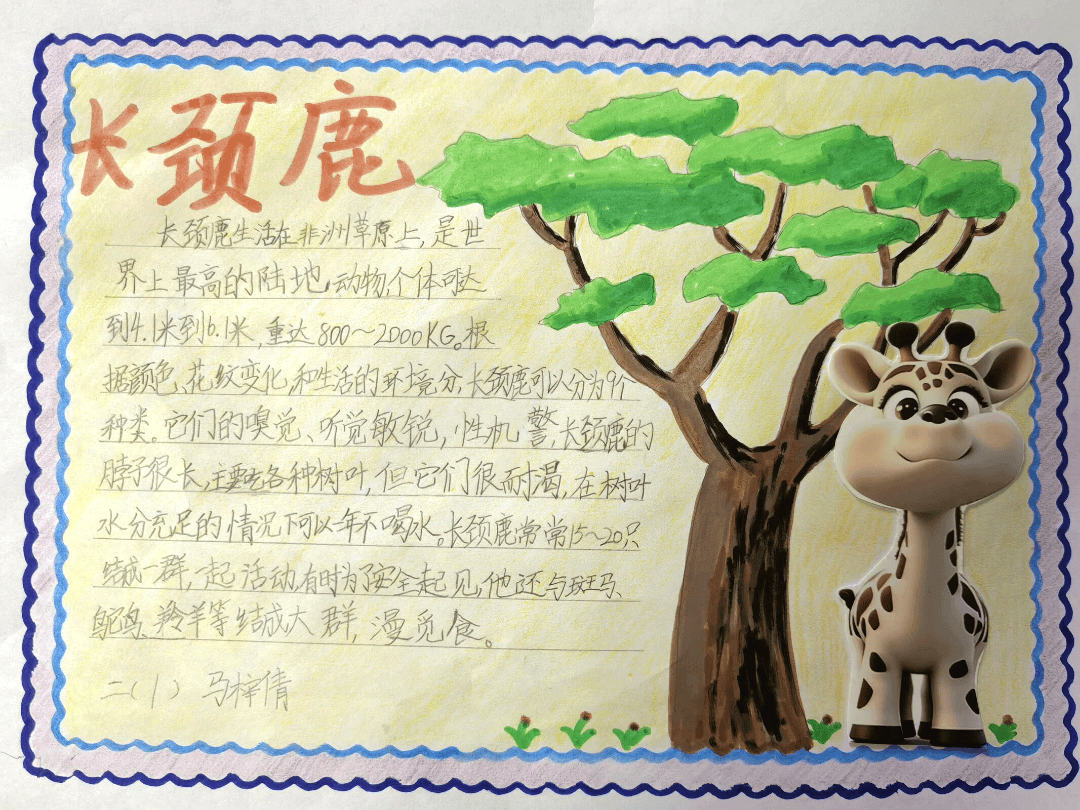 长颈鹿
长颈鹿生活在非洲草原上,是世
界上最高的陆地,动物,个体可达
到4.1米到6.1米,重达800~2000KG。根
据颜色、花纹变化,和生活的环境分,长颈鹿可以分为9个
种类。它们的嗅觉、听觉敏锐,性机警,长颈鹿的
脖子很长,主要吃各种树叶,但它们很耐渴,在树叶
水分充足的情况下可以一年不喝水。长颈鹿常常15~20只
结成一群,一起活动,有时为了安全起见,他还与斑马、
鸵鸟、羚羊等结成大群,漫觅食。
二(1) 马梓倩